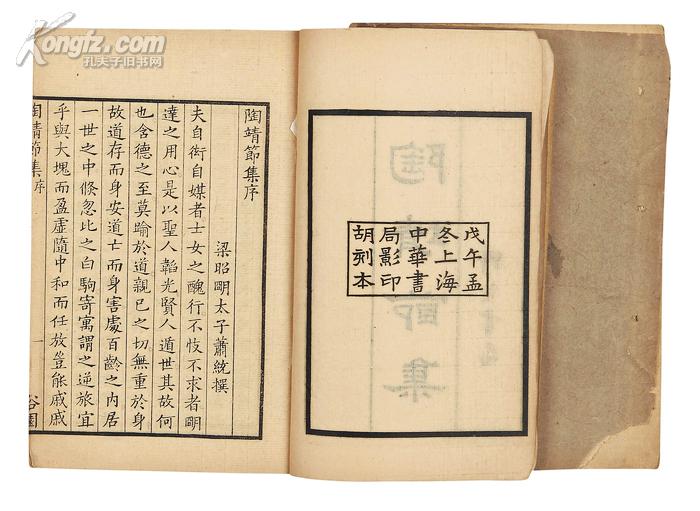 Kongfz.com
孔夫子旧书网
戊午孟
冬上海
中華書
局影印
胡刻本
陶靖節集
陶靖節集序
梁昭明太子蕭統撰
夫自衒自媒者士女之醜行不忮不求者明
達之用心是以聖人韜光賢人遁世其故何
也含德之至莫踰於道親己之切無重於身
故道存而身安道亡而身害處百齡之內居
一世之中倏忽比之白駒寄寓謂之逆旅宜
乎與大塊而盈虛隨中和而任放豈能戚戚
陶靖節集序
一